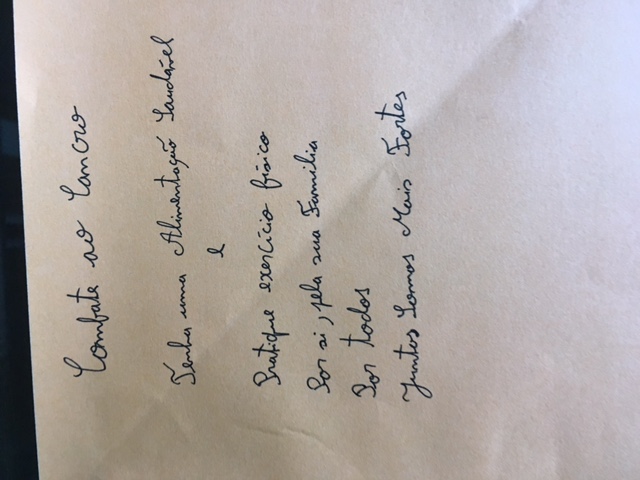 Combate ao Cancro
Tenha uma Alimentação Saudável
e
Pratique exercício físico
Por si, pela sua Familia
Por todos
Juntos Somos Mais Fortes